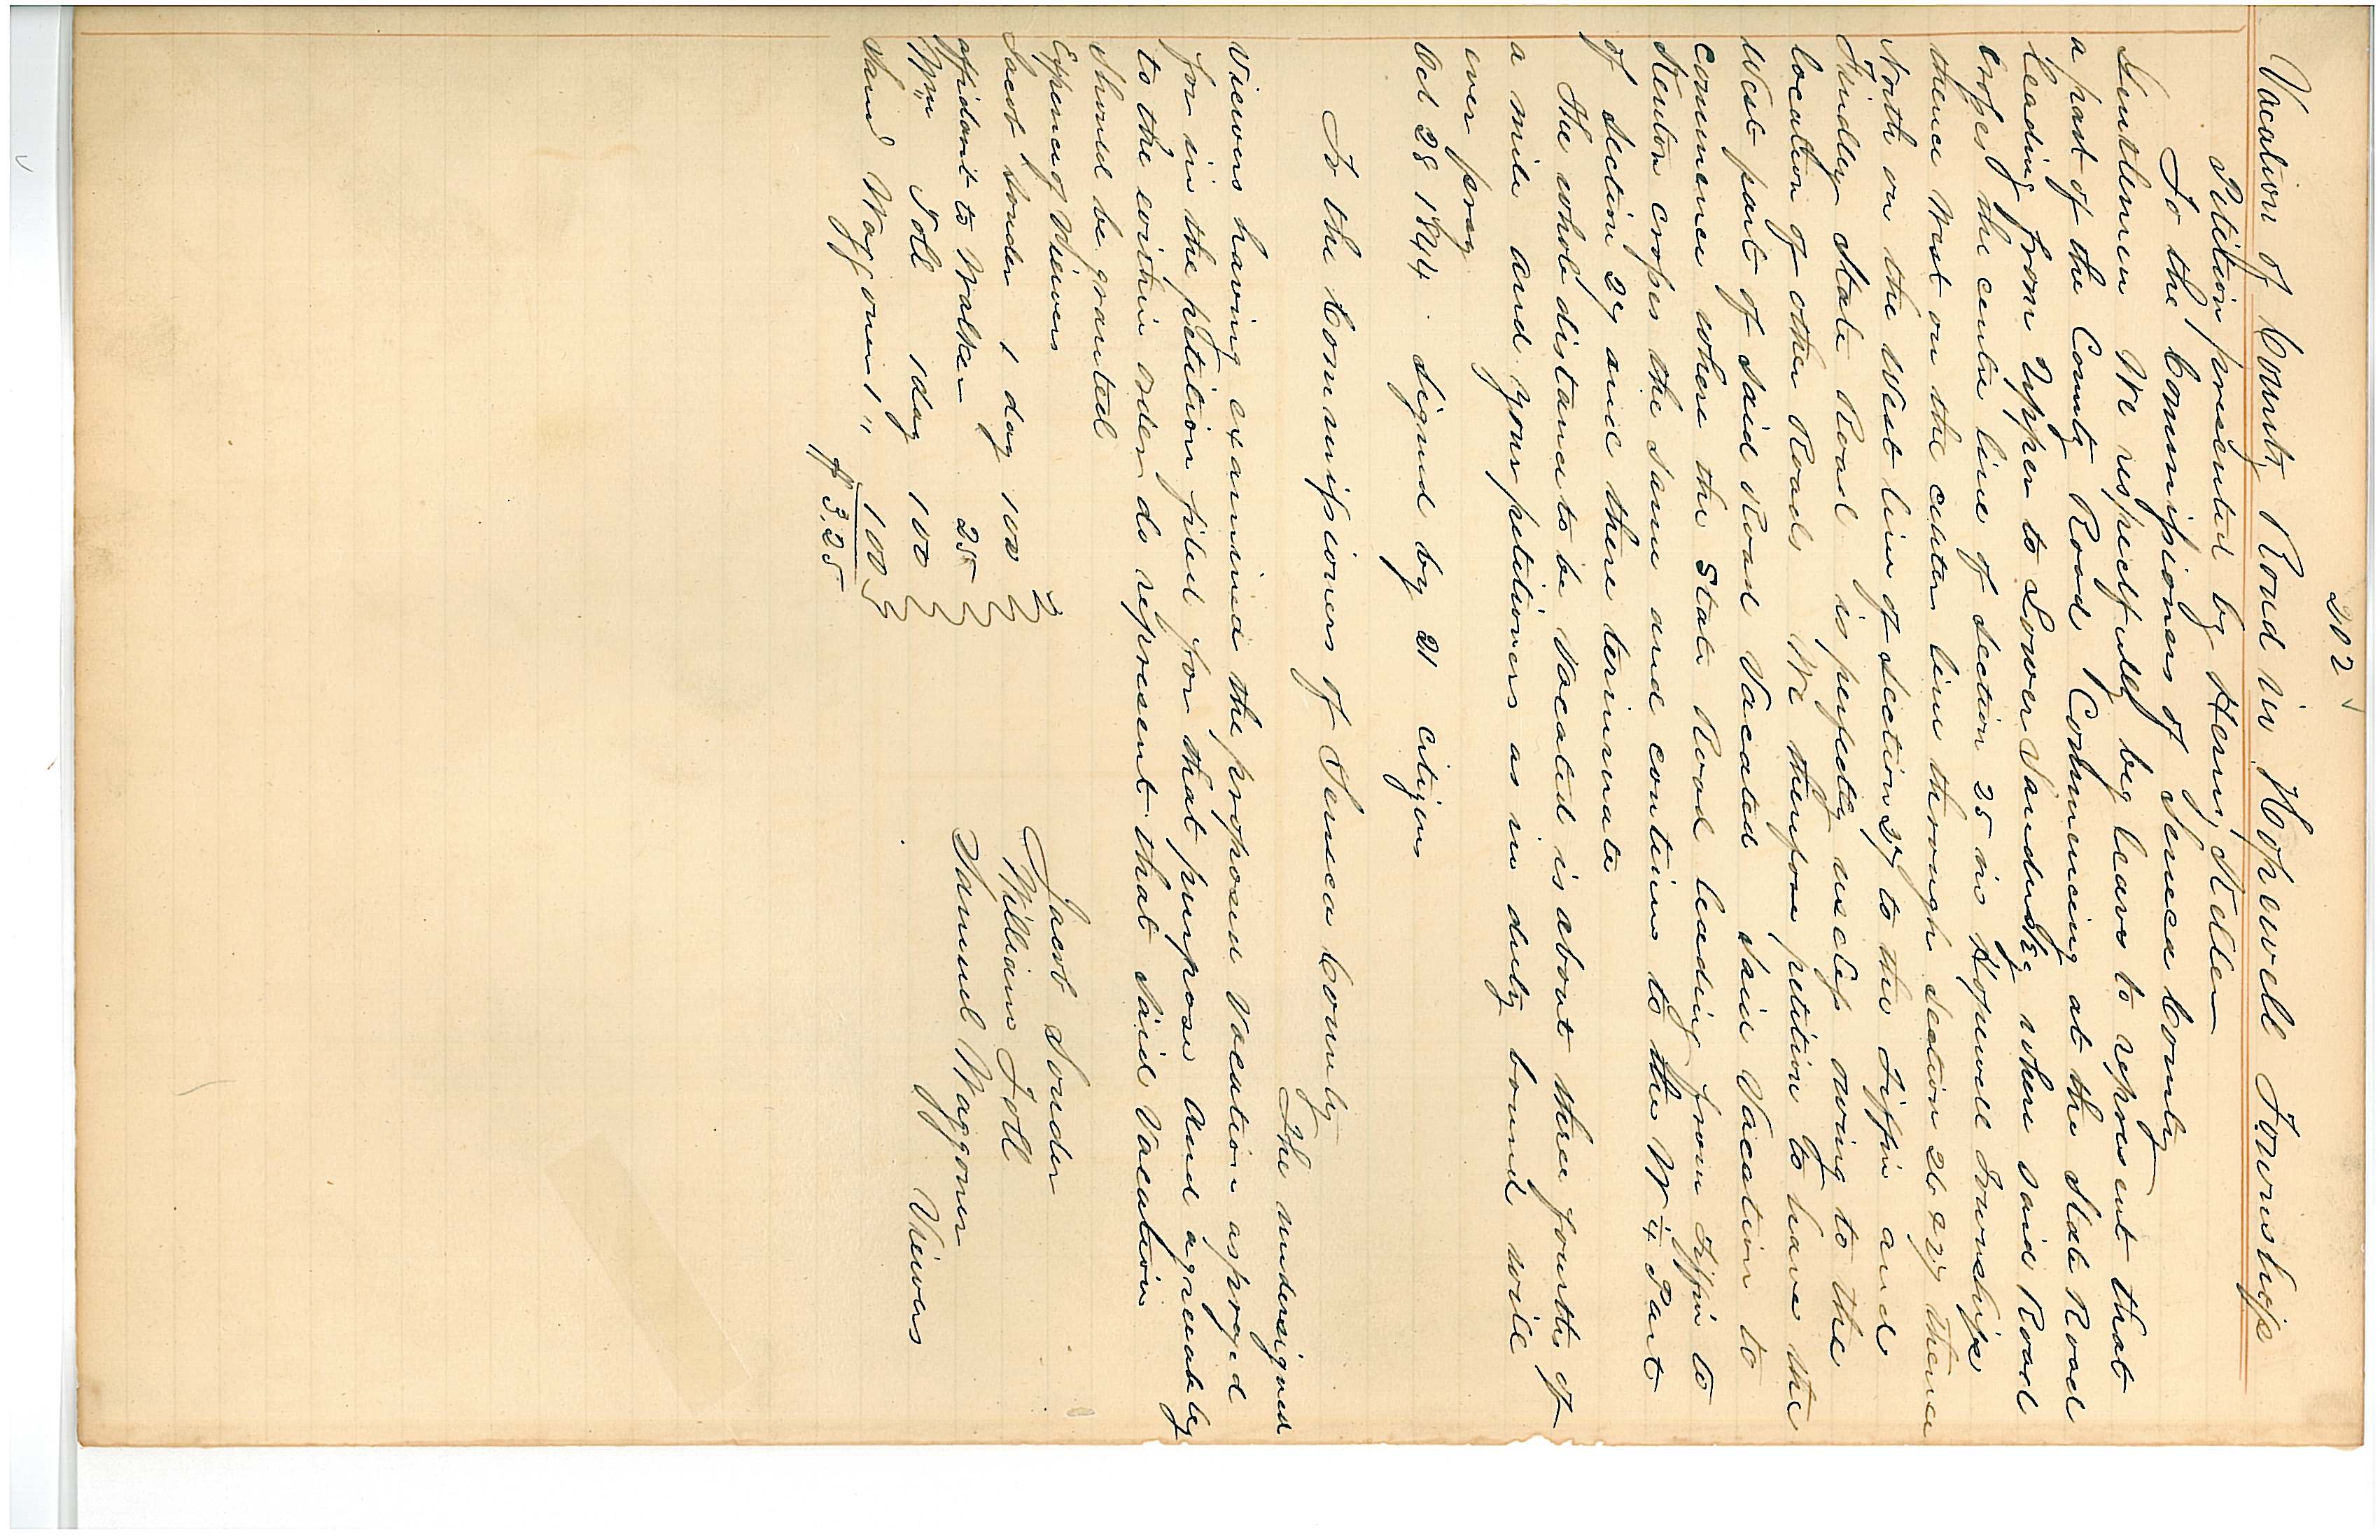 202
Vacation of County Road in Hopewell Township
Petition presented by Henry Stellen
To the Commissioners of Seneca County
Gentlemen We respectfully beg leave to represent that
a part of the County Road Commencing at the State Road
leading from Upper to Lower Sandusky where said Road
crosses the centre line of Section 25 in Hopewell Township
thence West on the center line through Section 26 & 27 thence
North on the West line of Section 27 to the Tiffin and
Findley State Road is perfectly useless owing to the
location of other Roads We therefore petition to have the
West part of said Road Vacated Said Vacation to
commence where the State Road leading from Tiffin to
Kenton crosses the same and continue to the W ¼ Part
of Section 27 and there terminate
The whole distance to be Vacated is about three fourths of
a mile and your petitioners as in duty bound will
ever pray
Oct 28 1844 Signed by 21 citizens
To the Commissioners of Seneca County
The undersigned
Viewers having examined the proposed Vacation as prayed
for in the petition filed for that purpose and agreeably
to the within order do represent that Said Vacation
Should be granted
Expence of Viewers
Jacob Souder 1 day 100
affidavit to Walker 25
Wm Toll 1 day 100
Sam Waggoner 1 " 100
$3.25
Jacob Souder
William Toll
Samuel Waggoner
Viewers